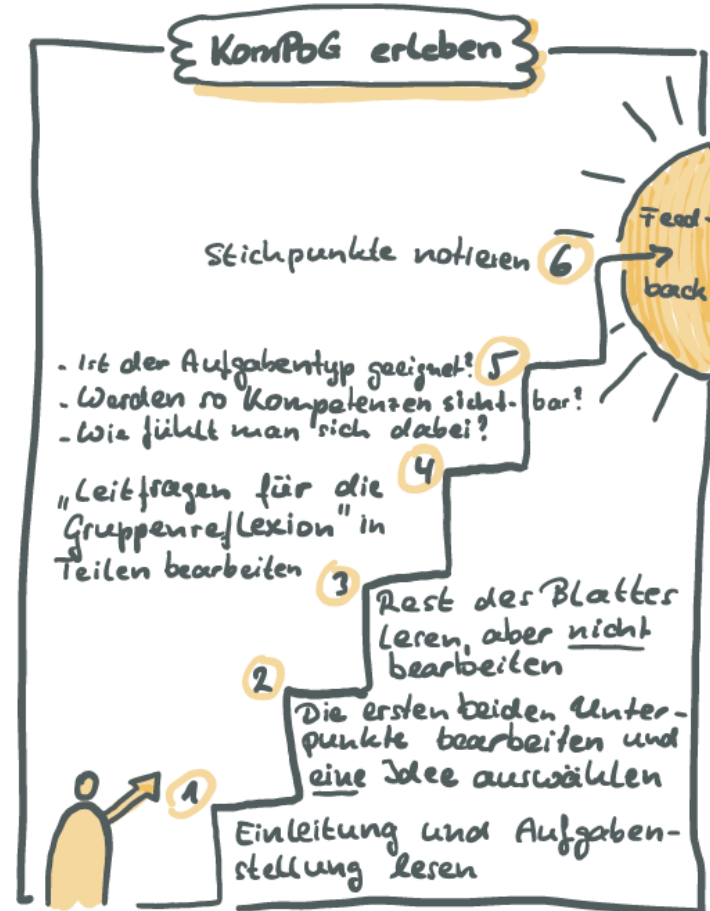 KomPoG erleben
Feed-
back
Stichpunkte notieren 6
- Ist der Aufgabentyp geeignet? 5
- Werden so Kompetenzen sicht-bar?
- Wie fühlt man sich dabei?
4
„Leitfragen für die
Gruppenreflexion" in
Teilen bearbeiten
3
Rest des Blattes
lesen, aber nicht
bearbeiten
2
Die ersten beiden Unter-
punkte bearbeiten und
eine Idee auswählen
1
Einleitung und Aufgaben-
stellung lesen